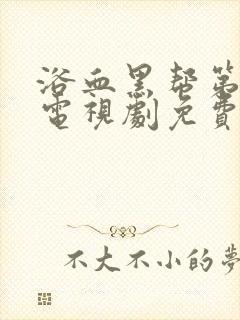 浴血黑帮第
電視劇免費
不大不小的夢